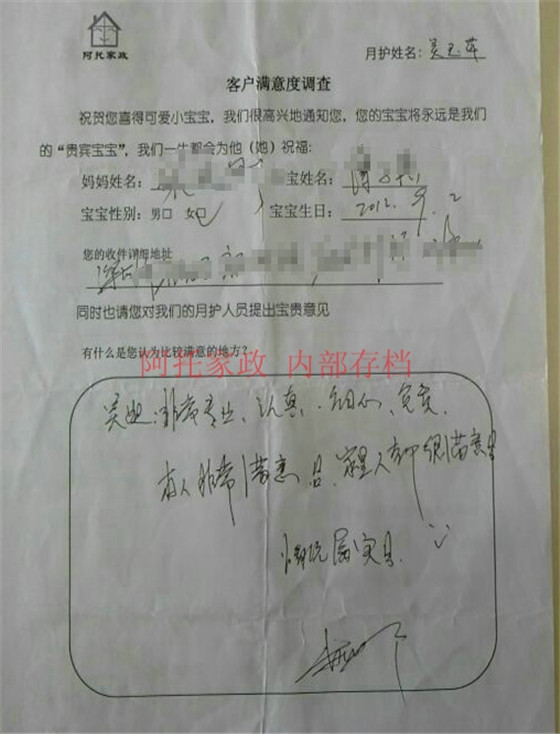 阿托家政
月护姓名：吴玉萍
客户满意度调查
祝贺您喜得可爱小宝宝，我们很高兴地通知您，您的宝宝将永远是我们
的“贵宾宝宝”，我们一生都会为他（她）祝福：
妈妈姓名： 宝姓名：
宝宝性别：男□ 女□ 宝宝生日：2012. 9. 2
您的收件详细地址
同时也请您对我们的月护人员提出宝贵意见
有什么是您认为比较满意的地方？
阿托家政 内部存档
吴姐：非常专业、认真、细心、
本人非常满意 家里人都很满意
情况属实